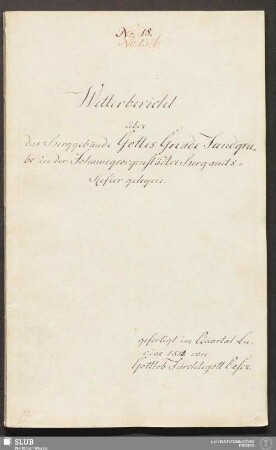 No. 18.
No. 1506
Wetterbericht
über
das Berggebäude Gottes Gnade Fundgru-
be in der Johanngeorgenstädter Bergamts-
Refier gelegen.
gefertigt im Quartal Lu-
ciae 1810 von
Gottlob Fürchtegott
SLUB